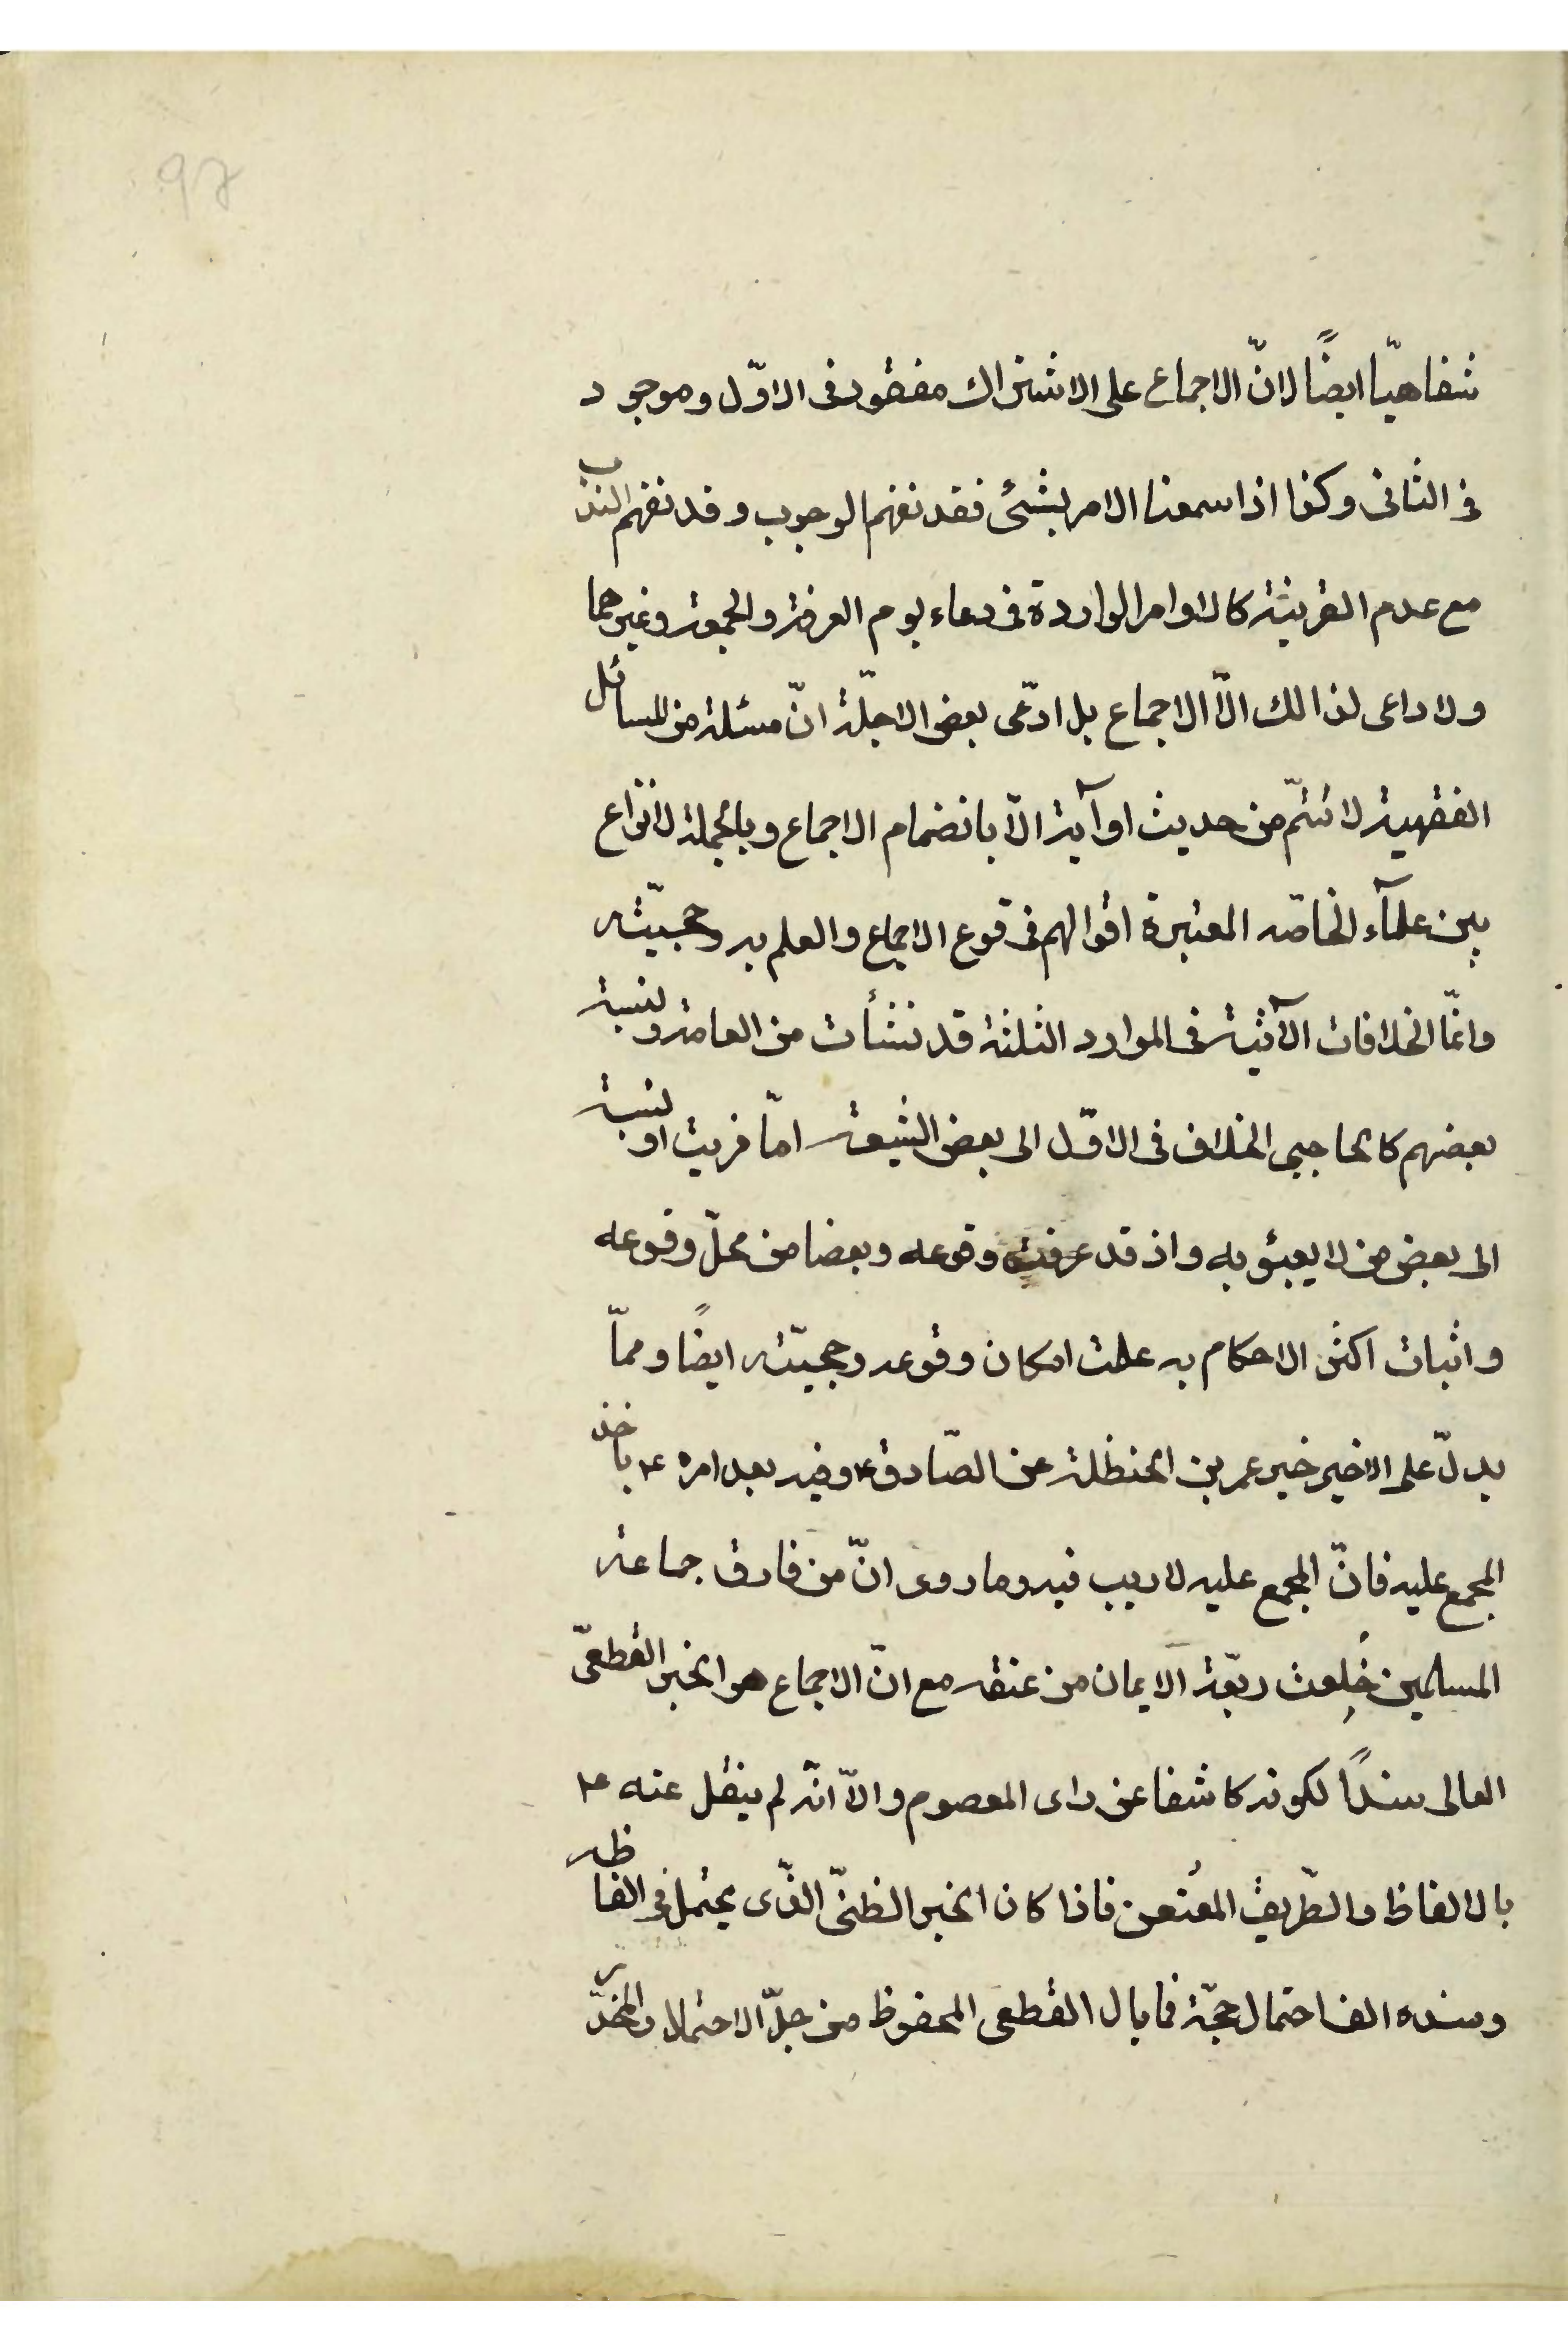 97
شفاهيّا ايضاً لانّ الاجماع على الاشتراك مفقود فى الاوّل وموجود
فى الثانى وكذا اذا سمعنا الامر بشئ فقد نفهم الوجوب وقد نفهم الندب
مع عدم القرينة كالاوامر الواردة فى دعاء يوم العرفة والجمعة وغيرهما
ولا داعى لذالك الّا الاجماع بل ادّعى بعض الاجلّة انّ مسئلة من المسائل
الفقهية لا تتمّ من حديث او آية الّا بانضمام الاجماع وبالجملة لا نزاع
بين علمآء الخاصّه المعتبرة اقوالهم فى قوع الاجماع والعلم به وحجيّته
وانمّا الخلافات الآتية فى الموارد الثلثة قد نشأت من العامة ونسبة
بعضهم كالحاجبى الخلاف فى الاوّل الى بعض الشيعة امّا فرية او نسبة
الى بعض من لا يعبئو به واذ قد عرفت وقوعه وبعضا من محلّ وقوعه
واثبات اكثر الاحكام به علمت امكان وقوعه وحجيّته ايضاً وممّا
يدلّ على الاخير خبر عمر بن الحنظلة عن الصّادق ع وفيه بعد امره ع باخذ
المجمع عليه فانّ المجمع عليه لا ريب فيه وما روى انّ من فارق جماعة
المسلمين خُلِعت ربقة الايمان من عنقه مع انّ الاجماع هو الخبر القطعىّ
العالى سنداً لكونه كاشفا عن راى المعصوم والّا انّه لم ينقل عنه ع
بالالفاظ والطّريق المعُنعن فاذا كان الخبر الظنىّ الذّى يحتمل فى الفاظه
وسنده الف احتمال حجّة فما بال القطعى المحفوظ من جلّ الاحتمالا